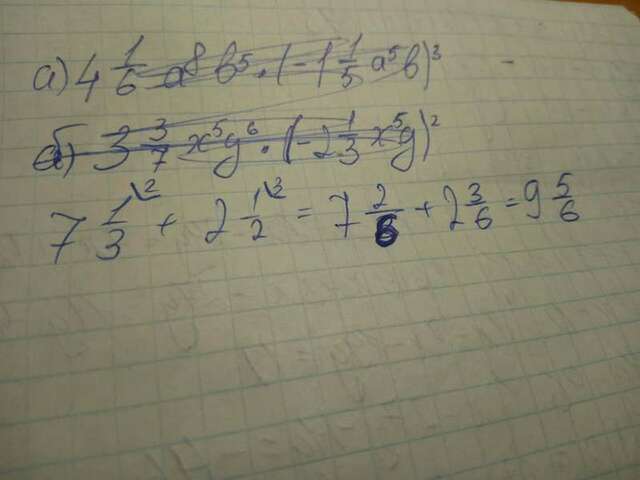 а) 4 1/6 a⁸b⁵ · (-1 1/5 a⁵b)³
б) 3 3/7 x⁵y⁶ · (-2 1/3 x⁵y)²
7 1/3 \2 + 2 1/2 \3 = 7 2/6 + 2 3/6 = 9 5/6